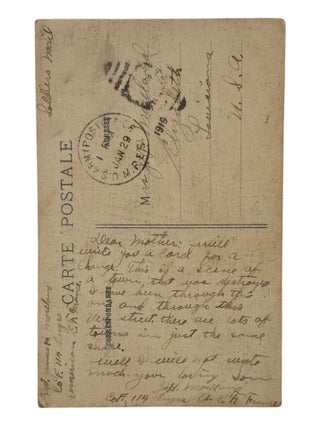 Soldiers Mail
CARTE POSTALE
U.S. ARMY POST
JAN 29
M.P.E.S.
1919
Mrs
Elizabeth
Louisiana
U.S.A
CORRESPONDANCE
Dear Mother: will
write you a Card for a
change this is a scene of
a town that was destroyed
I have been through this
one and through this
very street there are lots of
towns in just the same
shape.
well I will not write
much your loving son
Co F, 114 Engrs A. E. F. France
American E. F. France